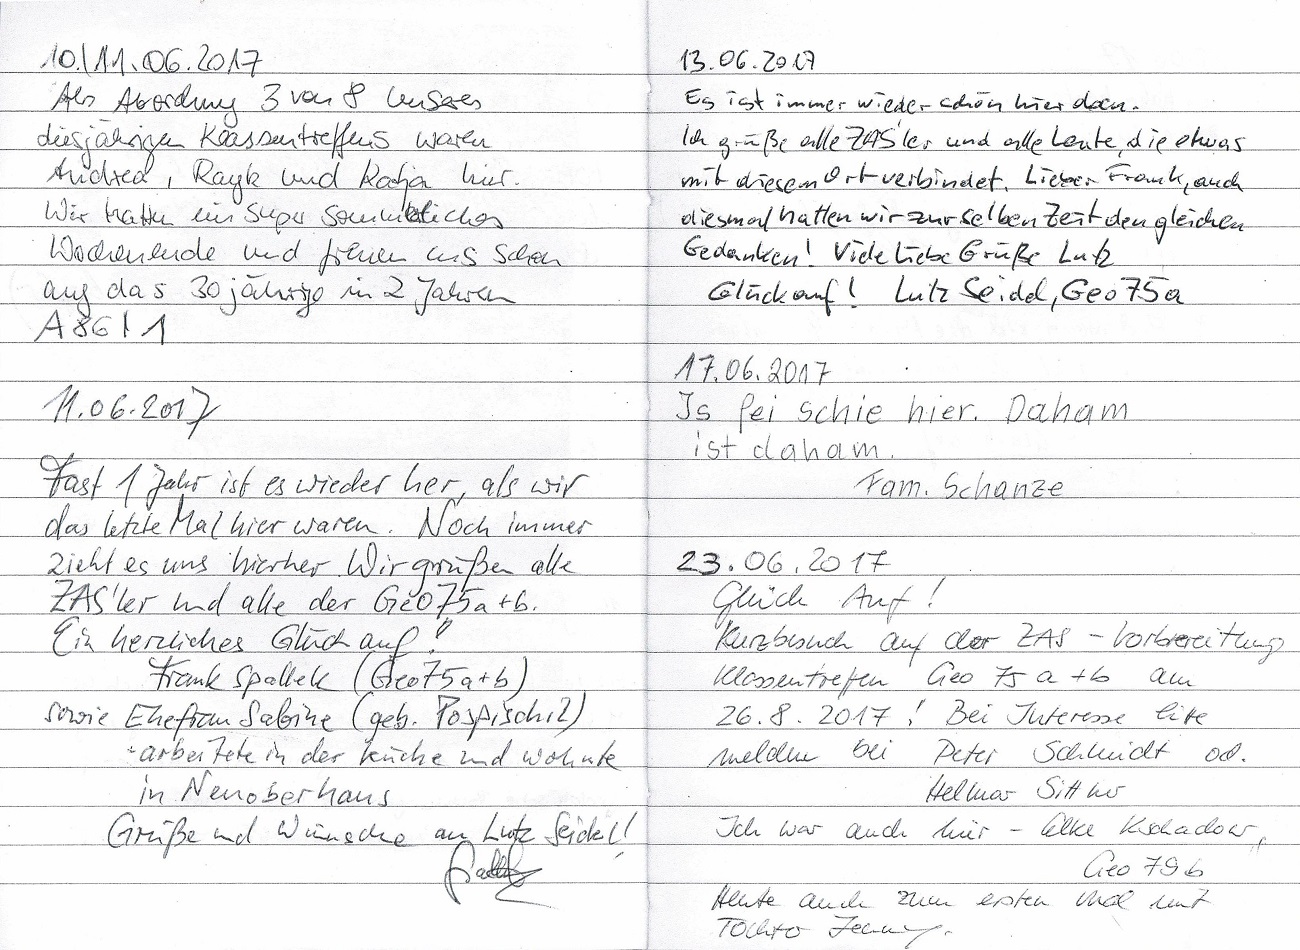 10./11.06.2017
Als Abordnung 3 von 8 unseres
diesjährigen Klassentreffens waren
Andrea, Rayk und Katja hier.
Wir hatten ein super sommerliches
Wochenende und freuen uns schon
auf das 30 jährige in 2 Jahren
A86/1
11.06.2017
Fast 1 Jahr ist es wieder her, als wir
das letzte Mal hier waren. Noch immer
zieht es uns hierher. Wir grüßen alle
ZAS'ler und alle der Geo75a+b.
Ein herzliches Glück auf!
Frank Spallek (Geo75a+b)
sowie Ehefrau Sabine (geb. Pospischil)
- arbeitete in der Küche und wohnte
in Neuoberhaus
Grüße und Wünsche an Lutz Seidel!
13.06.2017
Es ist immer wieder schön hier oben.
Ich grüße alle ZAS'ler und alle Leute, die etwas
mit diesem Ort verbindet. Lieber Frank, auch
diesmal hatten wir zur selben Zeit den gleichen
Gedanken! Viele liebe Grüße Lutz
Glück auf! Lutz Seidel, Geo75a
17.06.2017
Is fei schie hier. Daham
ist daham.
Fam. Schanze
23.06.2017
Glück Auf!
Kurzbesuch auf der ZAS - Vorbereitung
Klassentreffen Geo 75 a+b am
26.8.2017! Bei Interesse bitte
melden bei Peter Schmidt od.
Helmar Sittner
Ich war auch hier - Elke Kschadow,
Geo 79b
Heute auch zum ersten Mal mit
Tochter Jenny.